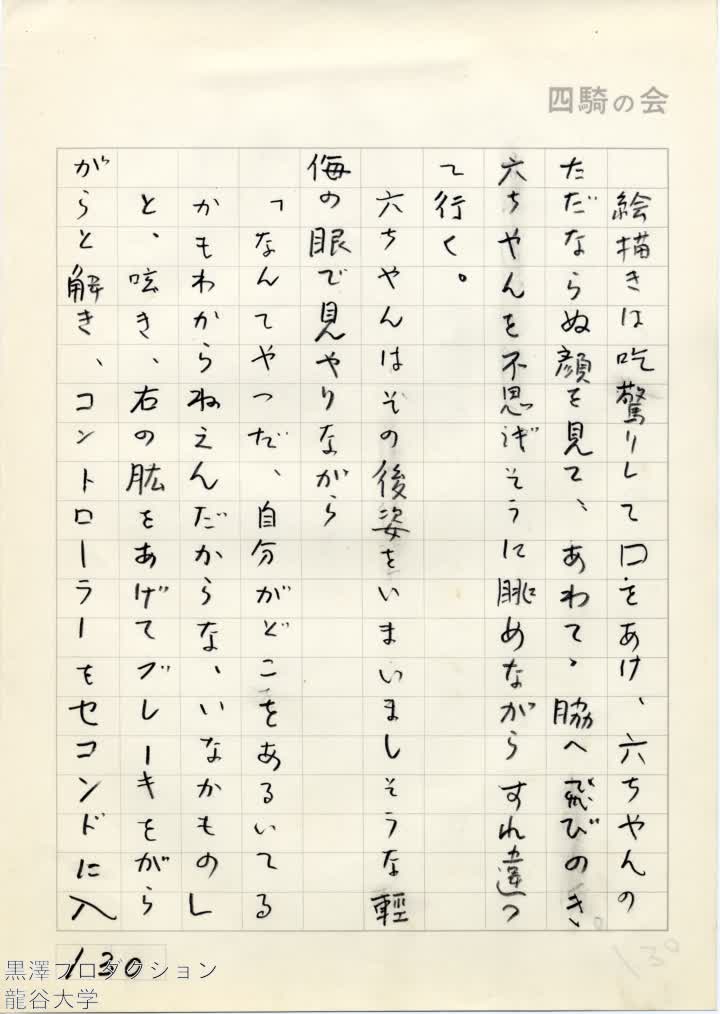 四騎の会
絵描きは吃驚りして口をあけ、六ちやんの
ただならぬ顔を見て、あわてゝ脇へ飛びのき、
六ちやんを不思議そうに眺めながらすれ違つ
て行く。
六ちやんはその後姿をいまいましそうな軽
侮の眼で見やりながら
「なんてやつだ、自分がどこをあるいてる
かもわからねえんだからな、いなかもの」
と、呟き、右の肱をあげてブレーキをがら
がらと解き、コントローラーをセコンドに入
130
130
黒澤プロダクション
龍谷大学